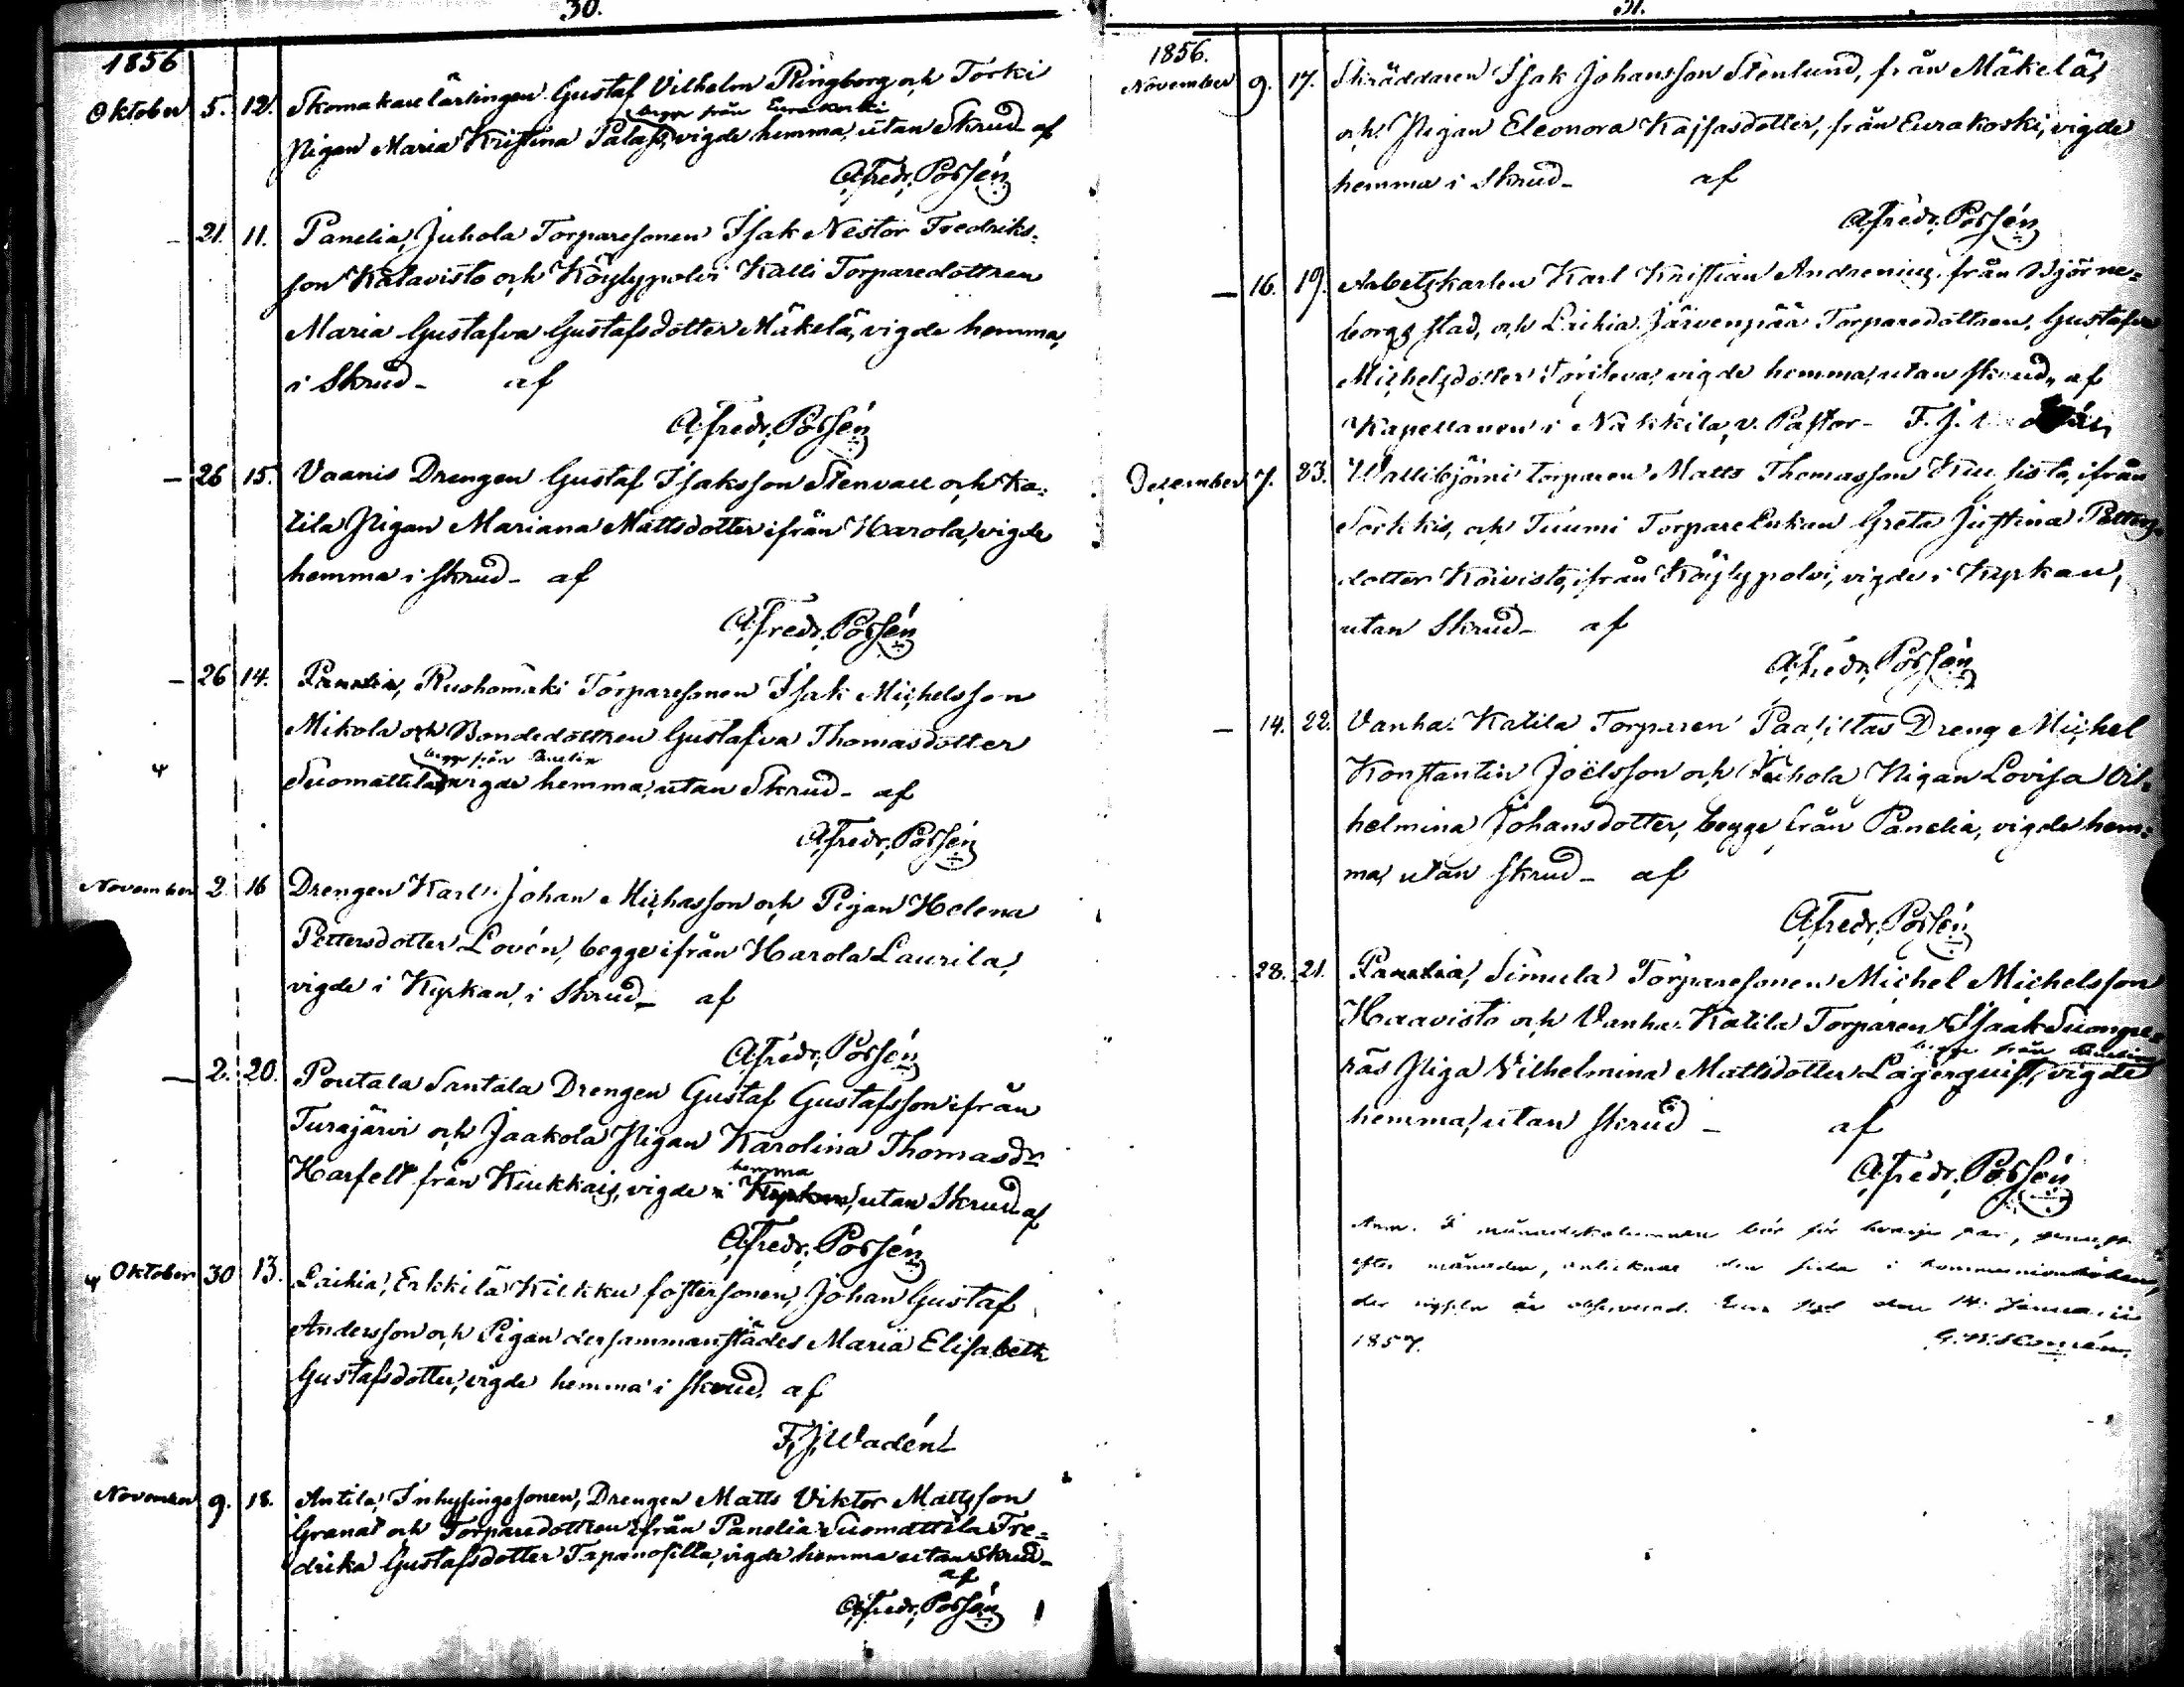 30.
1856
Oktober 5. 12. Skomakarelärlingen Gustaf Vilhelm Ringborg och Torki
begge från Eurakoski
Pigan Maria Kristina Palas, vigde hemma, utan Skrud af
A. Fredr. Porsén
– 21. 11. Panelia, Juhola Torparesonen Isak Nestor Fredriks-
son Katavisto och Köylypolvi Kalli Torparedottren
Maria Gustafva Gustafsdotter Mäkelä, vigde hemma,
i Skrud – af
A. Fredr. Porsén
– 26 15. Vaanis Drengen Gustaf Isaksson Stenvall och Ka-
tila Pigan Mariana Mattsdotter ifrån Harola, vigde
hemma i skrud – af
A. Fredr. Porsén
– 26 14. Panelia, Ruohomäki Torparesonen Isak Michelsson
Mikola och Bondedottren Gustafva Thomasdotter
begge från Panelia
Suomattila, vigde hemma, utan Skrud – af
A. Fredr. Porsén
November 2. 16 Drengen Karl Johan Michasson och Pigan Helena
Pettersdotter Lovén, begge ifrån Harola Laurila,
vigde i Kyrkan, i Skrud – af
A. Fredr. Porsén
– 2. 20. Poutala Santala Drengen Gustaf Gustafsson ifrån
Turajärvi och Jaakola Pigan Karolina Thomasdr
hemma
Harfelt från Kiukkais, vigde i Kyrkan, utan Skrud af
A. Fredr. Porsén
Oktober 30 13. Laihia, Erkkilä Kiekku fostersonen, Johan Gustaf
Andersson och Pigan dersammanstädes Maria Elisabeth
Gustafsdotter, vigde hemma i skrud. af
F. J. Wadén
November 9. 18. Antila, Inhysingesonen, Drengen Matts Viktor Mattsson
Granat och Torparedottren ifrån Panelia Suomattila Fre-
drika Gustafsdotter Tapanosilta, vigde hemma utan Skrud –
af
A. Fredr. Porsén
31.
1856.
November 9. 17. Skräddaren Isak Johansson Stenlund, från Mäkelä,
och Pigan Eleonora Kajsasdotter, från Eurakoski, vigde
hemma i Skrud – af
A. Fredr. Porsén
– 16. 19. Arbetskarlen Karl Kristian Andrenius från Björne-
borgs stad, och Laihia Järvenpää Torparedottren, Gustafva
Michelsdotter vigde hemma, utan skrud, af
Kapellanen i Nakkila, v. Pastor – F. J.
December 7. 23. Wallibjörni torparen Matts Thomasson ifrån
och Tuumi TorpareEnkan Greta Justina Petters-
dotter Koivisto, ifrån Köylypolvi, vigde i Kyrkan,
utan Skrud – af
A. Fredr. Porsén
– 14. 22. Vanha-Katila Torparen Dreng Michel
Konstantin Joëlsson och Juhola Pigan Lovisa Vil-
helmina Johansdotter, begge från Panelia, vigde hem-
ma, utan skrud – af
A. Fredr. Porsén
28. 21. Panelia, Simula Torparesonen Michel Michelsson
Haavisto och Vanha-Katila Torparen Isaak Suonpe-
begge från Panelia
räs Piga Vilhelmina Mattsdotter Lagerquist, vigde
hemma, utan skrud – af
A. Fredr. Porsén
Anm. I månadskolumnen bör för hvarje par,
efter månaden, antecknas den sida i kommunionboken,
der är den 14 Januarii
1857.